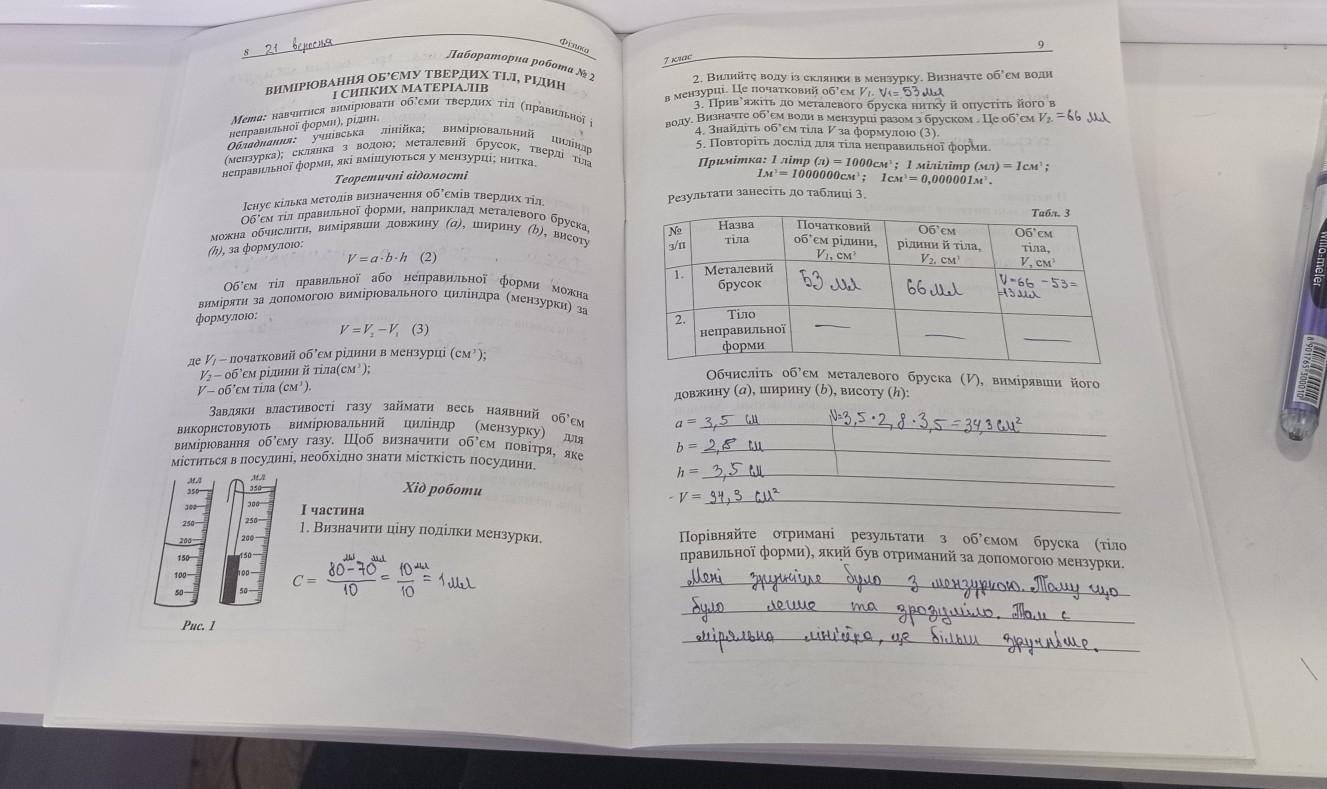 8 21 вересня Фізика
Лабораторна робота № 2
ВИМІРЮВАННЯ ОБ’ЄМУ ТВЕРДИХ ТІЛ, РІДИН
І СИПКИХ МАТЕРІАЛІВ
Мета: навчитися вимірювати об’єми твердих тіл (правильної і
неправильної форми), рідин.
Обладнання: учнівська лінійка; вимірювальний циліндр
(мензурка); склянка з водою; металевий брусок, тверді тіла
неправильної форми, які вміщуються у мензурці; нитка.
Теоретичні відомості
Існує кілька методів визначення об’ємів твердих тіл.
Об’єм тіл правильної форми, наприклад металевого бруска,
можна обчислити, вимірявши довжину (a), ширину (b), висоту
(h), за формулою:
V = a·b·h (2)
Об’єм тіл правильної або неправильної форми можна
виміряти за допомогою вимірювального циліндра (мензурки) за
формулою:
V = V₂ – V₁ (3)
де V₁ – початковий об’єм рідини в мензурці (см³);
V₂ – об’єм рідини й тіла(см³);
V – об’єм тіла (см³).
Завдяки властивості газу займати весь наявний об’єм
використовують вимірювальний циліндр (мензурку) для
вимірювання об’єму газу. Щоб визначити об’єм повітря, яке
міститься в посудині, необхідно знати місткість посудини.
мл мл
350 350
300 300
250 250
200 200
150 150
100 100
50 50
Рис. 1
Хід роботи
І частина
1. Визначити ціну поділки мензурки.
C = 80 мл - 70 мл / 10 = 10 мл / 10 = 1 мл
7 клас 9
2. Вилийте воду із склянки в мензурку. Визначте об’єм води
в мензурці. Це початковий об’єм V₁. V₁= 53 мл
3. Прив’яжіть до металевого бруска нитку й опустіть його в
воду. Визначте об’єм води в мензурці разом з бруском . Це об’єм V₂. = 66 мл
4. Знайдіть об’єм тіла V за формулою (3).
5. Повторіть дослід для тіла неправильної форми.
Примітка: 1 літр (л) = 1000см³; 1 мілілітр (мл) = 1см³;
1м³ = 1000000см³; 1см³ = 0,000001м³.
Результати занесіть до таблиці 3.
Табл. 3
№ з/п Назва тіла Початковий об’єм рідини, V₁, см³ Об’єм рідини й тіла, V₂, см³ Об’єм тіла, V, см³
1. Металевий брусок 53 мл 66 мл V=66 - 53= =13 мл
2. Тіло неправильної форми — — —
Обчисліть об’єм металевого бруска (V), вимірявши його
довжину (a), ширину (b), висоту (h):
a = 3,5 см V=3,5 · 2,8 · 3,5 = 34,3 см²
b = 2,8 см
h = 3,5 см
- V = 34,3 см²
Порівняйте отримані результати з об’ємом бруска (тіло
правильної форми), який був отриманий за допомогою мензурки.
Мені зручніше було з мензуркою. Тому що
було легше та зрозуміло. Там є
міряльна лінійка, це більш зручніше.
8901765300010